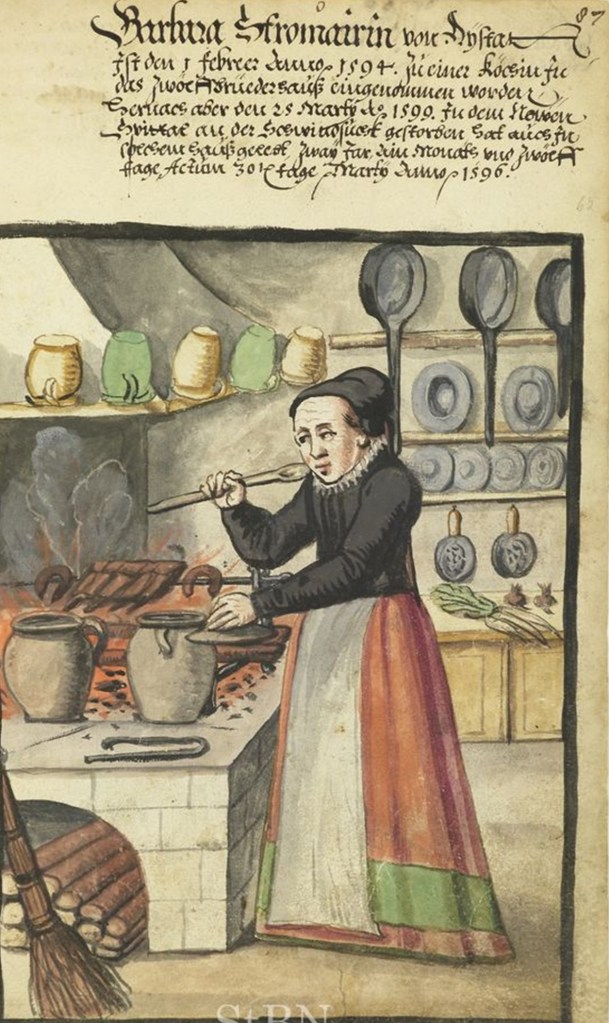 87
Barbara Stromairin von Aystat
Ist den 1 febrer Anno 1594. zu einer Köchin In
das Zwölffbrüederhauß eingenommen worden
Hernach aber den 25 Marty Ao 1599. In dem Newen
Spittal an der Schwindsücht gestorben hat auch In
solchem hauß gelebt, Zway Jar, ain Monath vnd Zwölff
tage, Actum 30 tage Marty Anno 1596.
63
StBN